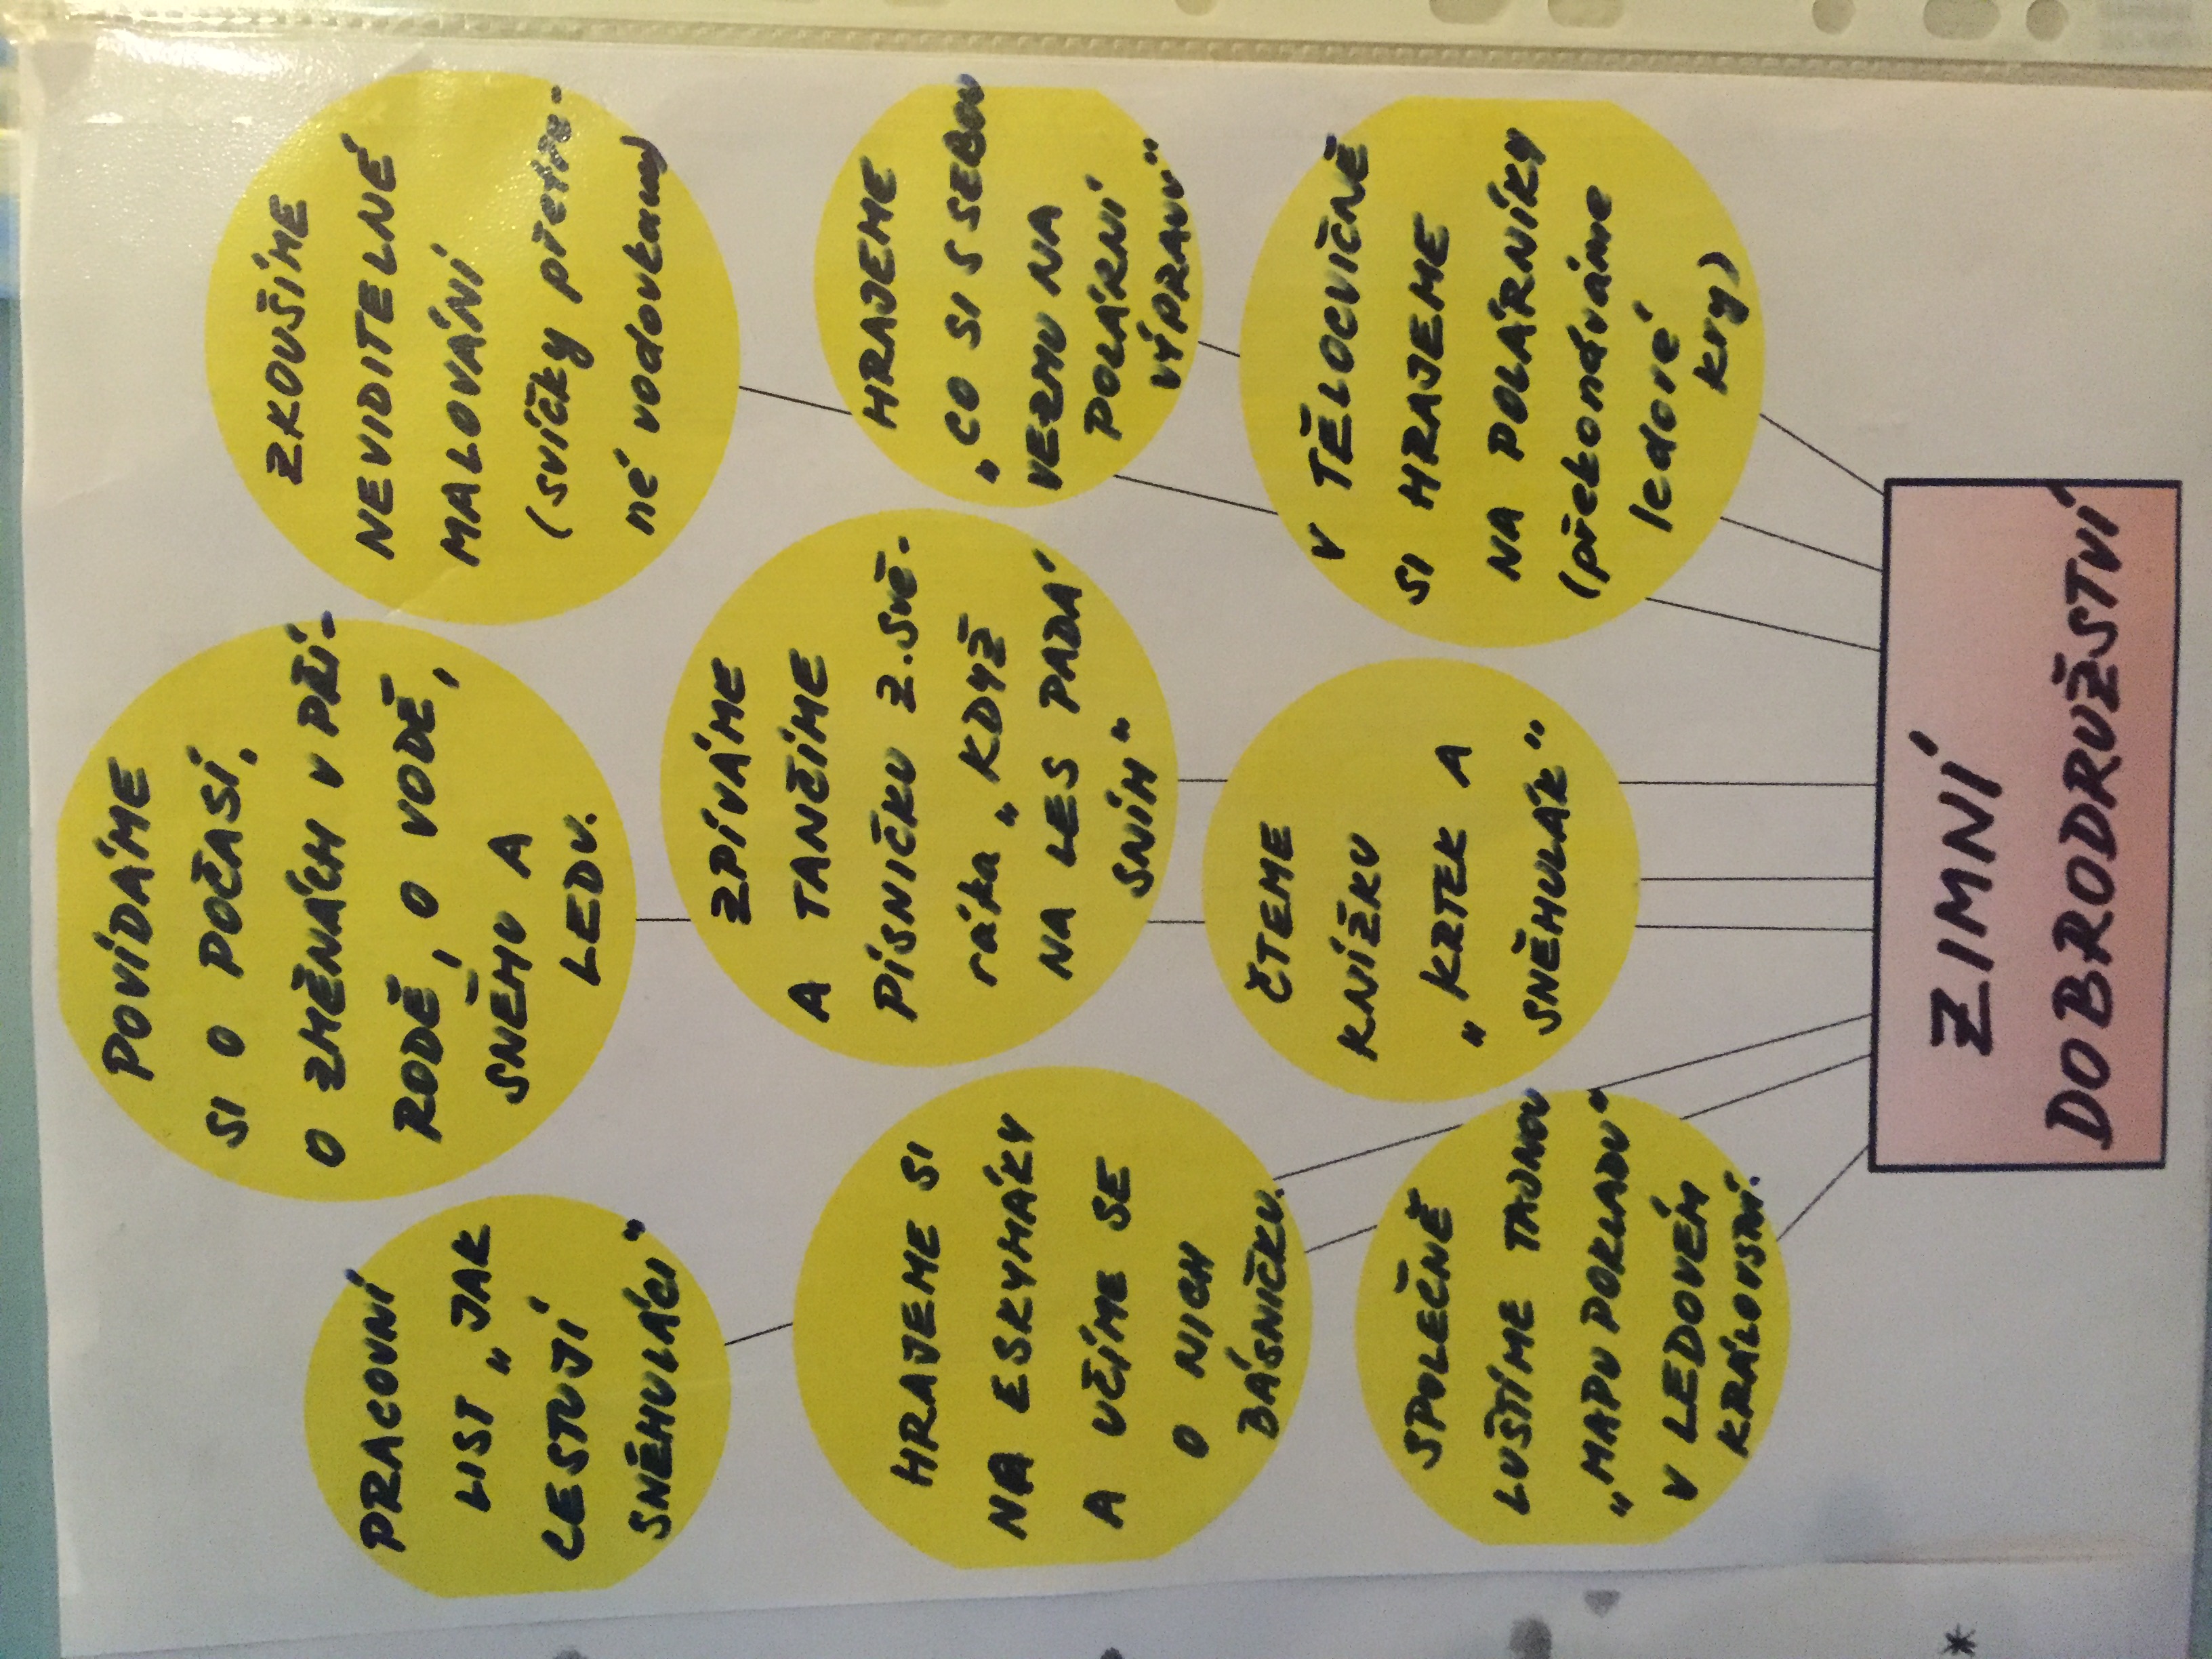 PRACOVNÍ
LIST „JAK
CESTUJÍ
SNĚHULÁCI"
POVÍDÁME
SI O POČASÍ,
O ZMĚNÁCH V PŘÍ-
RODĚ, O VODĚ,
SNĚHU A
LEDU.
ZKOUŠÍME
NEVIDITELNÉ
MALOVÁNÍ
(svíčky přetíra-
né vodovkami)
HRAJEME SI
NA ESKYMÁKY
A UČÍME SE
O NICH
BÁSNIČKU.
ZPÍVÁME
A TANČÍME
PÍSNIČKU Z.SVĚ-
ráka „KDYŽ
NA LES PADÁ
SNÍH"
HRAJEME
„CO SI S SEBOU
VEZMU NA
POLÁRNÍ
VÝPRAVU"
SPOLEČNĚ
LUŠTÍME TAJNOU
„MAPU POKLADU"
V LEDOVÉM
KRÁLOVSTVÍ.
ČTEME
KNÍŽKU
„KRTEK A
SNĚHULÁK"
V TĚLOCVIČNĚ
SI HRAJEME
NA POLÁRNÍKY
(překonáváme
ledové
kry)
ZIMNÍ
DOBRODRUŽSTVÍ